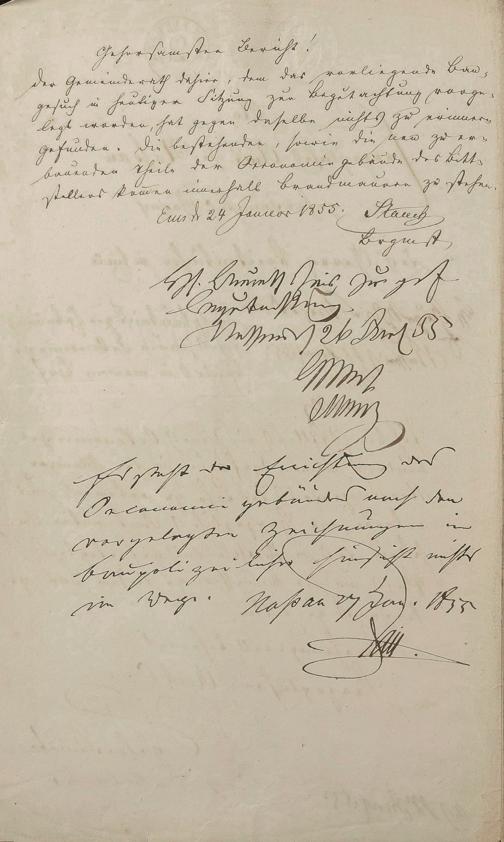 Gehorsamster Bericht!
Der Gemeinderath dahier, dem das vorliegende Bau-
gesuch in heutiger Sitzung zur Begutachtung vorge-
legt worden, hat gegen dasselbe nichts zu erinnern
gefunden. Die bestehenden, sowie die neu zu er-
bauenden Theile der Oeconomiegebäude des Bitt-
stellers kommen innerhalb Brandmauern zu stehen.
Ems d. 24 Januar 1855.
Brgmstr
zur gef
Begutachtung
Nassau 26 55
Es steht der Errichtung des
Oeconomiegebäudes nach den
vorgelegten Zeichnungen in
baupolizeilicher Hinsicht nichts
im Wege. Naßau 27 Jan. 1855